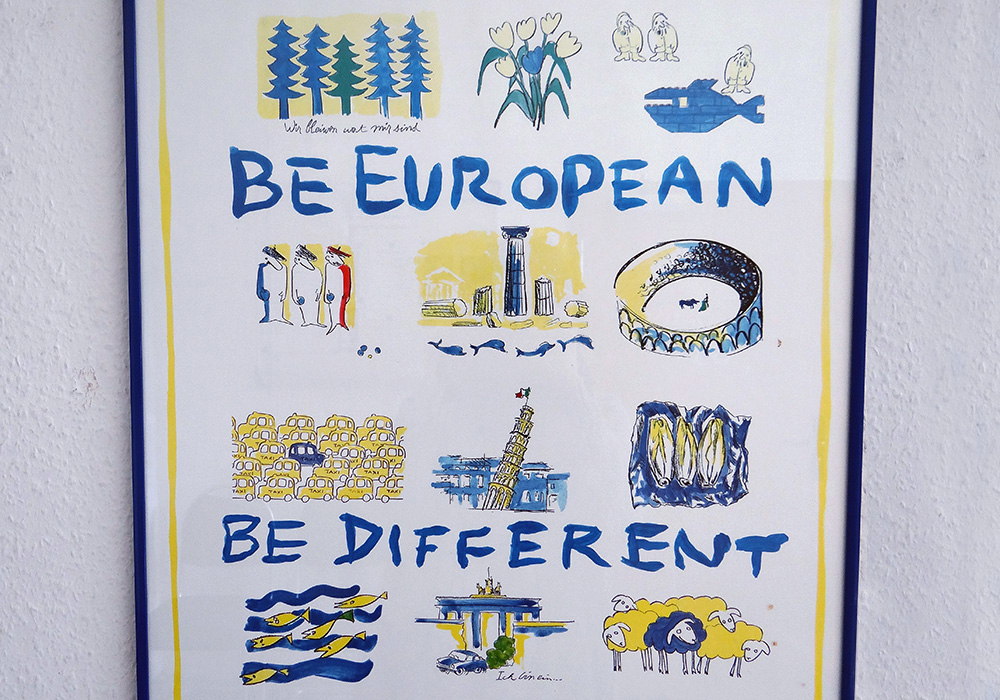 Wir bleiwen wat mir sind
BE EUROPEAN
TAXI TAXI TAXI TAXI TAXI
BE DIFFERENT
Ich bin ein...